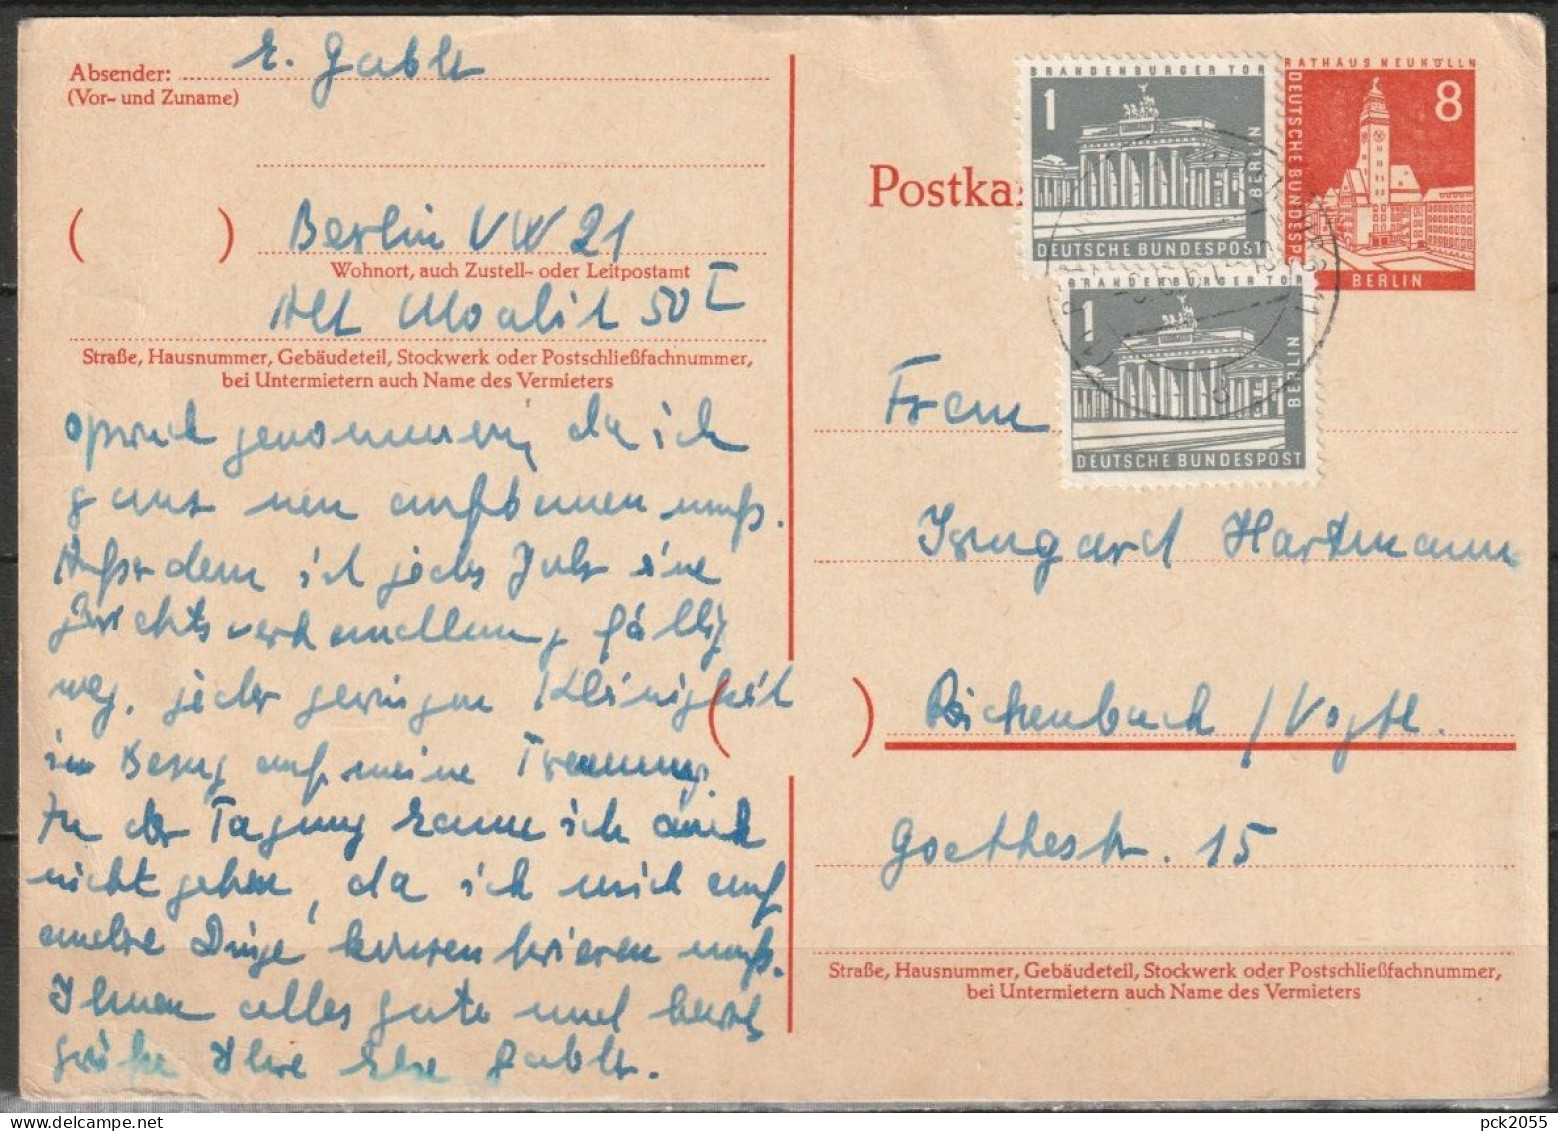 Absender: E. Gabler
(Vor- und Zuname)
Berlin NW 21
Wohnort, auch Zustell- oder Leitpostamt
Alt Moabit 50 I
Straße, Hausnummer, Gebäudeteil, Stockwerk oder Postschließfachnummer,
bei Untermietern auch Name des Vermieters
genommen, da ich
ganz neu aufbauen muß.
Außerdem ist jedes Jahr eine
Gerichtsverhandlung fällig
weg. jeder geringen Kleinigkeit
im Bezug auf meine Trennung.
Zu der Tagung kann ich auch
nicht gehen, da ich mich auf
andre Dinge konzentrieren muß.
Ihnen alles gute und herzl
grüße Ihre Else Gabler.
BRANDENBURGER TOR
1
BERLIN
DEUTSCHE BUNDESPOST
RATHAUS NEUKÖLLN
8
DEUTSCHE BUNDESPO
BERLIN
Postka
BRANDENBURGER TOR
1
BERLIN
DEUTSCHE BUNDESPOST
Frau
Irmgard Hartmann
Reichenbach / Vogtl.
Goethestr. 15
Straße, Hausnummer, Gebäudeteil, Stockwerk oder Postschließfachnummer,
bei Untermietern auch Name des Vermieters
pck2055